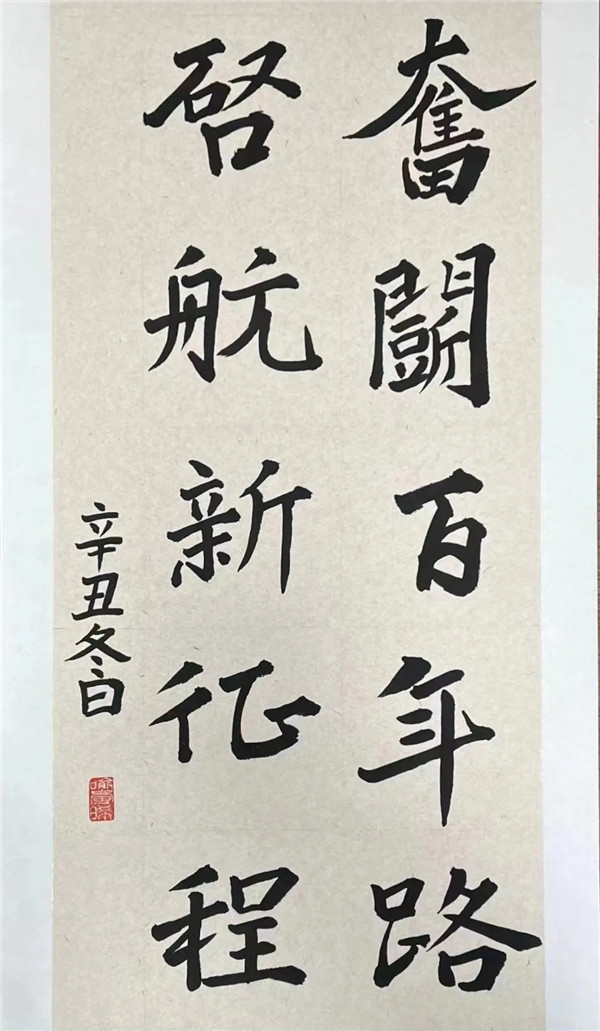 奮鬭百年路
啓航新征程
辛丑冬白